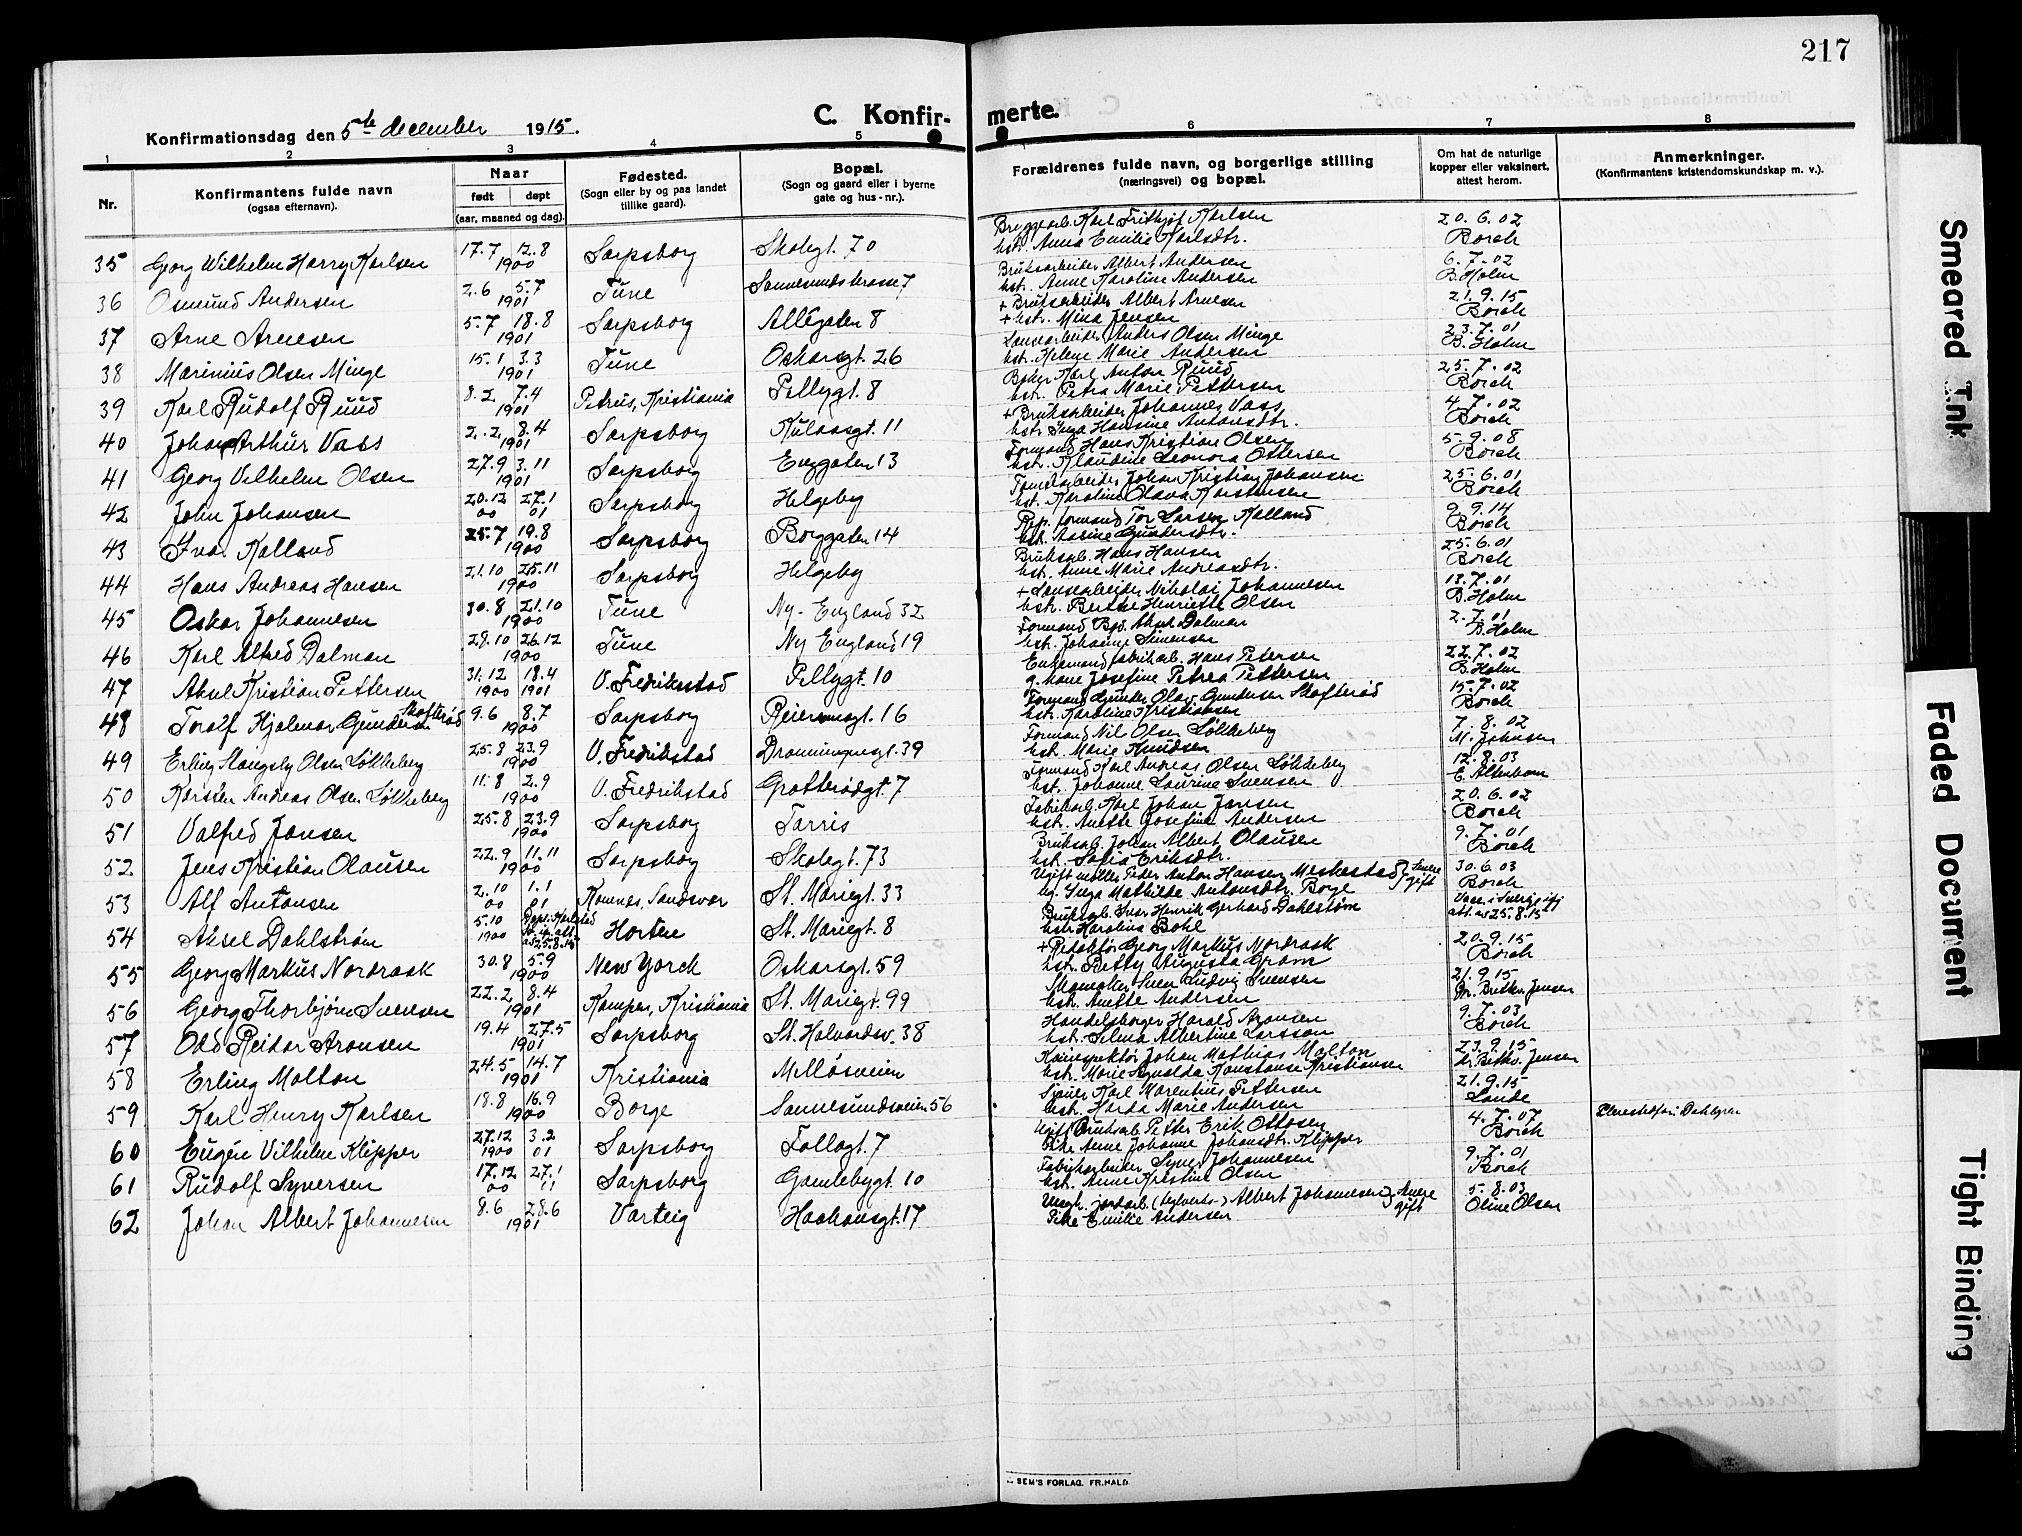 217
Konfirmationsdag den 5te december 1915.
C. Konfir-
merte.
1 2 3 4 5 6 7 8
Nr.
Konfirmantens fulde navn
(ogsaa efternavn).
Naar
født døpt
(aar, maaned og dag).
Fødested.
(Sogn eller by og paa landet
tillike gaard).
Bopæl.
(Sogn og gaard eller i byerne
gate og hus-nr.).
Forældrenes fulde navn, og borgerlige stilling
(næringsvei) og bopæl.
Om hat de naturlige
kopper eller vaksinert,
attest herom.
Anmerkninger.
(Konfirmantens kristendomskundskap m. v.).
35 Georg Wilhelm Harry Karlsen 17.7 12.8 1900 Sarpsborg Skolegt. 70 Bryggearb. Karl Frithjof Karlsen
hstr. Anna Emilie Karlsdtr. 20.6.02 Borch
36 Osmund Andersen 2.6 5.7 1901 Tune Sannesundstrasse 7 Bruksarbeider Albert Andersen
hst. Anne Karoline Andersen 6.7.02 B. Holm
37 Arne Arnesen 5.7 18.8 1901 Sarpsborg Allégaten 8 + Bruksarbeider Albert Arnesen
+ hstr. Mina Jensen 21.9.15 Borch
38 Marinius Olsen Minge 15.1 3.3 1901 Tune Oskarsgt. 26 Lønsearbeider Anders Olsen Minge
hst. Helene Marie Andersen 23.7.01 B. Holm
39 Karl Rudolf Ruud 8.2 7.4 1901 Petrus, Kristiania Pellygt. 8 Baker Karl Anton Ruud
hst. Petra Marie Pettersen 25.7.02 Borch
40 Johan Arthur Vass 2.2 8.4 1901 Sarpsborg Kulaasgt. 11 + Bruksarbeider Johannes Vass
hstr. Inga Hansine Antonsdtr. 4.7.02 Borch
41 Georg Vilhelm Olsen 27.9 3.11 1901 Sarpsborg Enggaten 13 Formand Hans Kristian Olsen
hst. Klaudine Leonora Ottersen 5.9.08 Borch
42 John Johansen 20.12 00 27.1 01 Sarpsborg Helgeby Tomtearbeider Johan Kristian Johansen
hst. Karoline Olava Karstensen 25.6.01 Borch
43 Ivar Kalland 25.7 19.8 1900 Sarpsborg Borggaten 14 Rep. formand Tor Larsen Kalland
hst. Aasine Gundersdtr. 9.9.14 Borch
44 Hans Andreas Hansen 21.10 25.11 1900 Sarpsborg Helgeby Bruksarb. Hans Hansen
hst. Anne Marie Andreasdtr. 25.6.01 Borch
45 Oskar Johannesen 30.8 21.10 1900 Tune Ny-England 32 + Lønsearbeider Nikolai Johannesen
hstr. Berthe Henriette Olsen 18.7.01 B. Holm
46 Karl Alfred Dalman 28.10 26.12 1900 Tune Ny England 19 Formand Bgd. Akset Dalman
hst. Johanne Simensen 2.7.01 B. Holm
47 Aksel Kristian Pettersen 31.12 1900 18.4 1901 V. Fredrikstad Pellygt. 10 Enkemand fabrikarb. Hans Petersen
g. m. ane Josefine Petrea Pettersen 22.7.02 B. Holm
48 Torolf Hjalmar Gundersen Skofterød 9.6 8.7 1900 Sarpsborg Reiermosgt. 16 Formand Gunder Olav Gundersen Skofterød
hstr. Karoline Kristiansen 15.7.02 Borch
49 Erling Mangsby Olsen Løkkeberg 25.8 23.9 1900 V. Fredrikstad Dronningensgt. 39 Formand Nils Olsen Løkkeberg
hst. Marie Knudsen 7.8.02 M. Johnsen
50 Karsten Andreas Olsen Løkkeberg 11.8 2.9 1900 V. Fredrikstad Grotterødgt. 7 Formand Karl Andreas Olsen Løkkeberg
hst. Johanne Laurine Svensen 12.8.03 E. Altenborn
51 Valfred Jansen 25.8 23.9 1900 Sarpsborg Tarris Fabrikarb. Karl Johan Jansen
hst. Anette Josefine Andersen 20.6.02 Borch
52 Jens Kristian Olausen 22.9 11.11 1900 Sarpsborg Skolegt. 73 Bruksarb. Johan Albert Olausen
hst. Sofia Eriksdtr. 9.7.01 Borch
53 Alf Antonsen 2.10 00 1.1 01 Komnes, Sandsvær St. Mariegt. 33 Ugift møller Peder Anton Hansen Meskestad } Senere gift
ug. Inga Mathilde Antonsdtr. Borge 30.6.03 Borch
54 Aksel Dahlstrøm 5.10 1900 Døpt Karlstad iflg. att. av 25.8.15 Horten St. Mariegt. 8 Bruksarb. Ivar Henrik Gerhard Dahlstrøm
hstr. Karolina Bohl Vacc. i Sverige iflg. att. av 25.8.15
55 Georg Markus Nordraak 30.8 5.9 1900 New Yorck Oskarsgt. 59 + Redaktør Georg Markus Nordraak
hst. Betty Augusta Gram 20.9.15 Borch
56 Georg Thorbjørn Svensen 22.2 8.4 1901 Kampen, Kristiania St. Mariegt. 99 Skomaker Sven Ludvig Svensen
hst. Anette Andersen 21.9.15 Dr. Bretkv. Jensen
57 Odd Reidar Aronsen 19.4 27.5 1901 Sarpsborg St. Halvardsv. 38 Handelsborger Harald Aronsen
hst. Selma Albertine Larsson 9.7.03 Borch
58 Erling Molton 24.5 14.7 1901 Kristiania Melløsveien Kainspektør Johan Mathias Molton
hst. Marie Ragnalda Konstanse Kristiansen 23.9.15 Dr. Bretkv. Jensen
59 Karl Henry Karlsen 18.8 16.9 1900 Borge Sannesundsveien 56 Snier Karl Marentius Pettersen
hst. Harda Marie Andersen 21.9.15 Lande
60 Eugén Vilhelm Klipper 27.12 1900 3.2 01 Sarpsborg Tollogt. 7 Ugift Bruksarb. Petter Erik Ottosen
Pike Anne Johanne Johansdtr. Klipper 4.7.07 Borch
61 Rudolf Syversen 17.12 00 27.1 01 Sarpsborg Gamlebygt. 10 Fabrikarbeider Syver Johannesen
hst. Anne Kristine Olsen 9.7.01 Borch
62 Johan Albert Johannesen 8.6 28.6 1901 Varteig Haakonsgt. 17 Ungk. jordarb. (teglverks-) Albert Johannesen } Senere gift
Pike Emilie Andersen 5.8.03 Oline Olsen
SEM'S FORLAG. FR.HALD.
Smeared Ink
Faded Document
Tight Binding